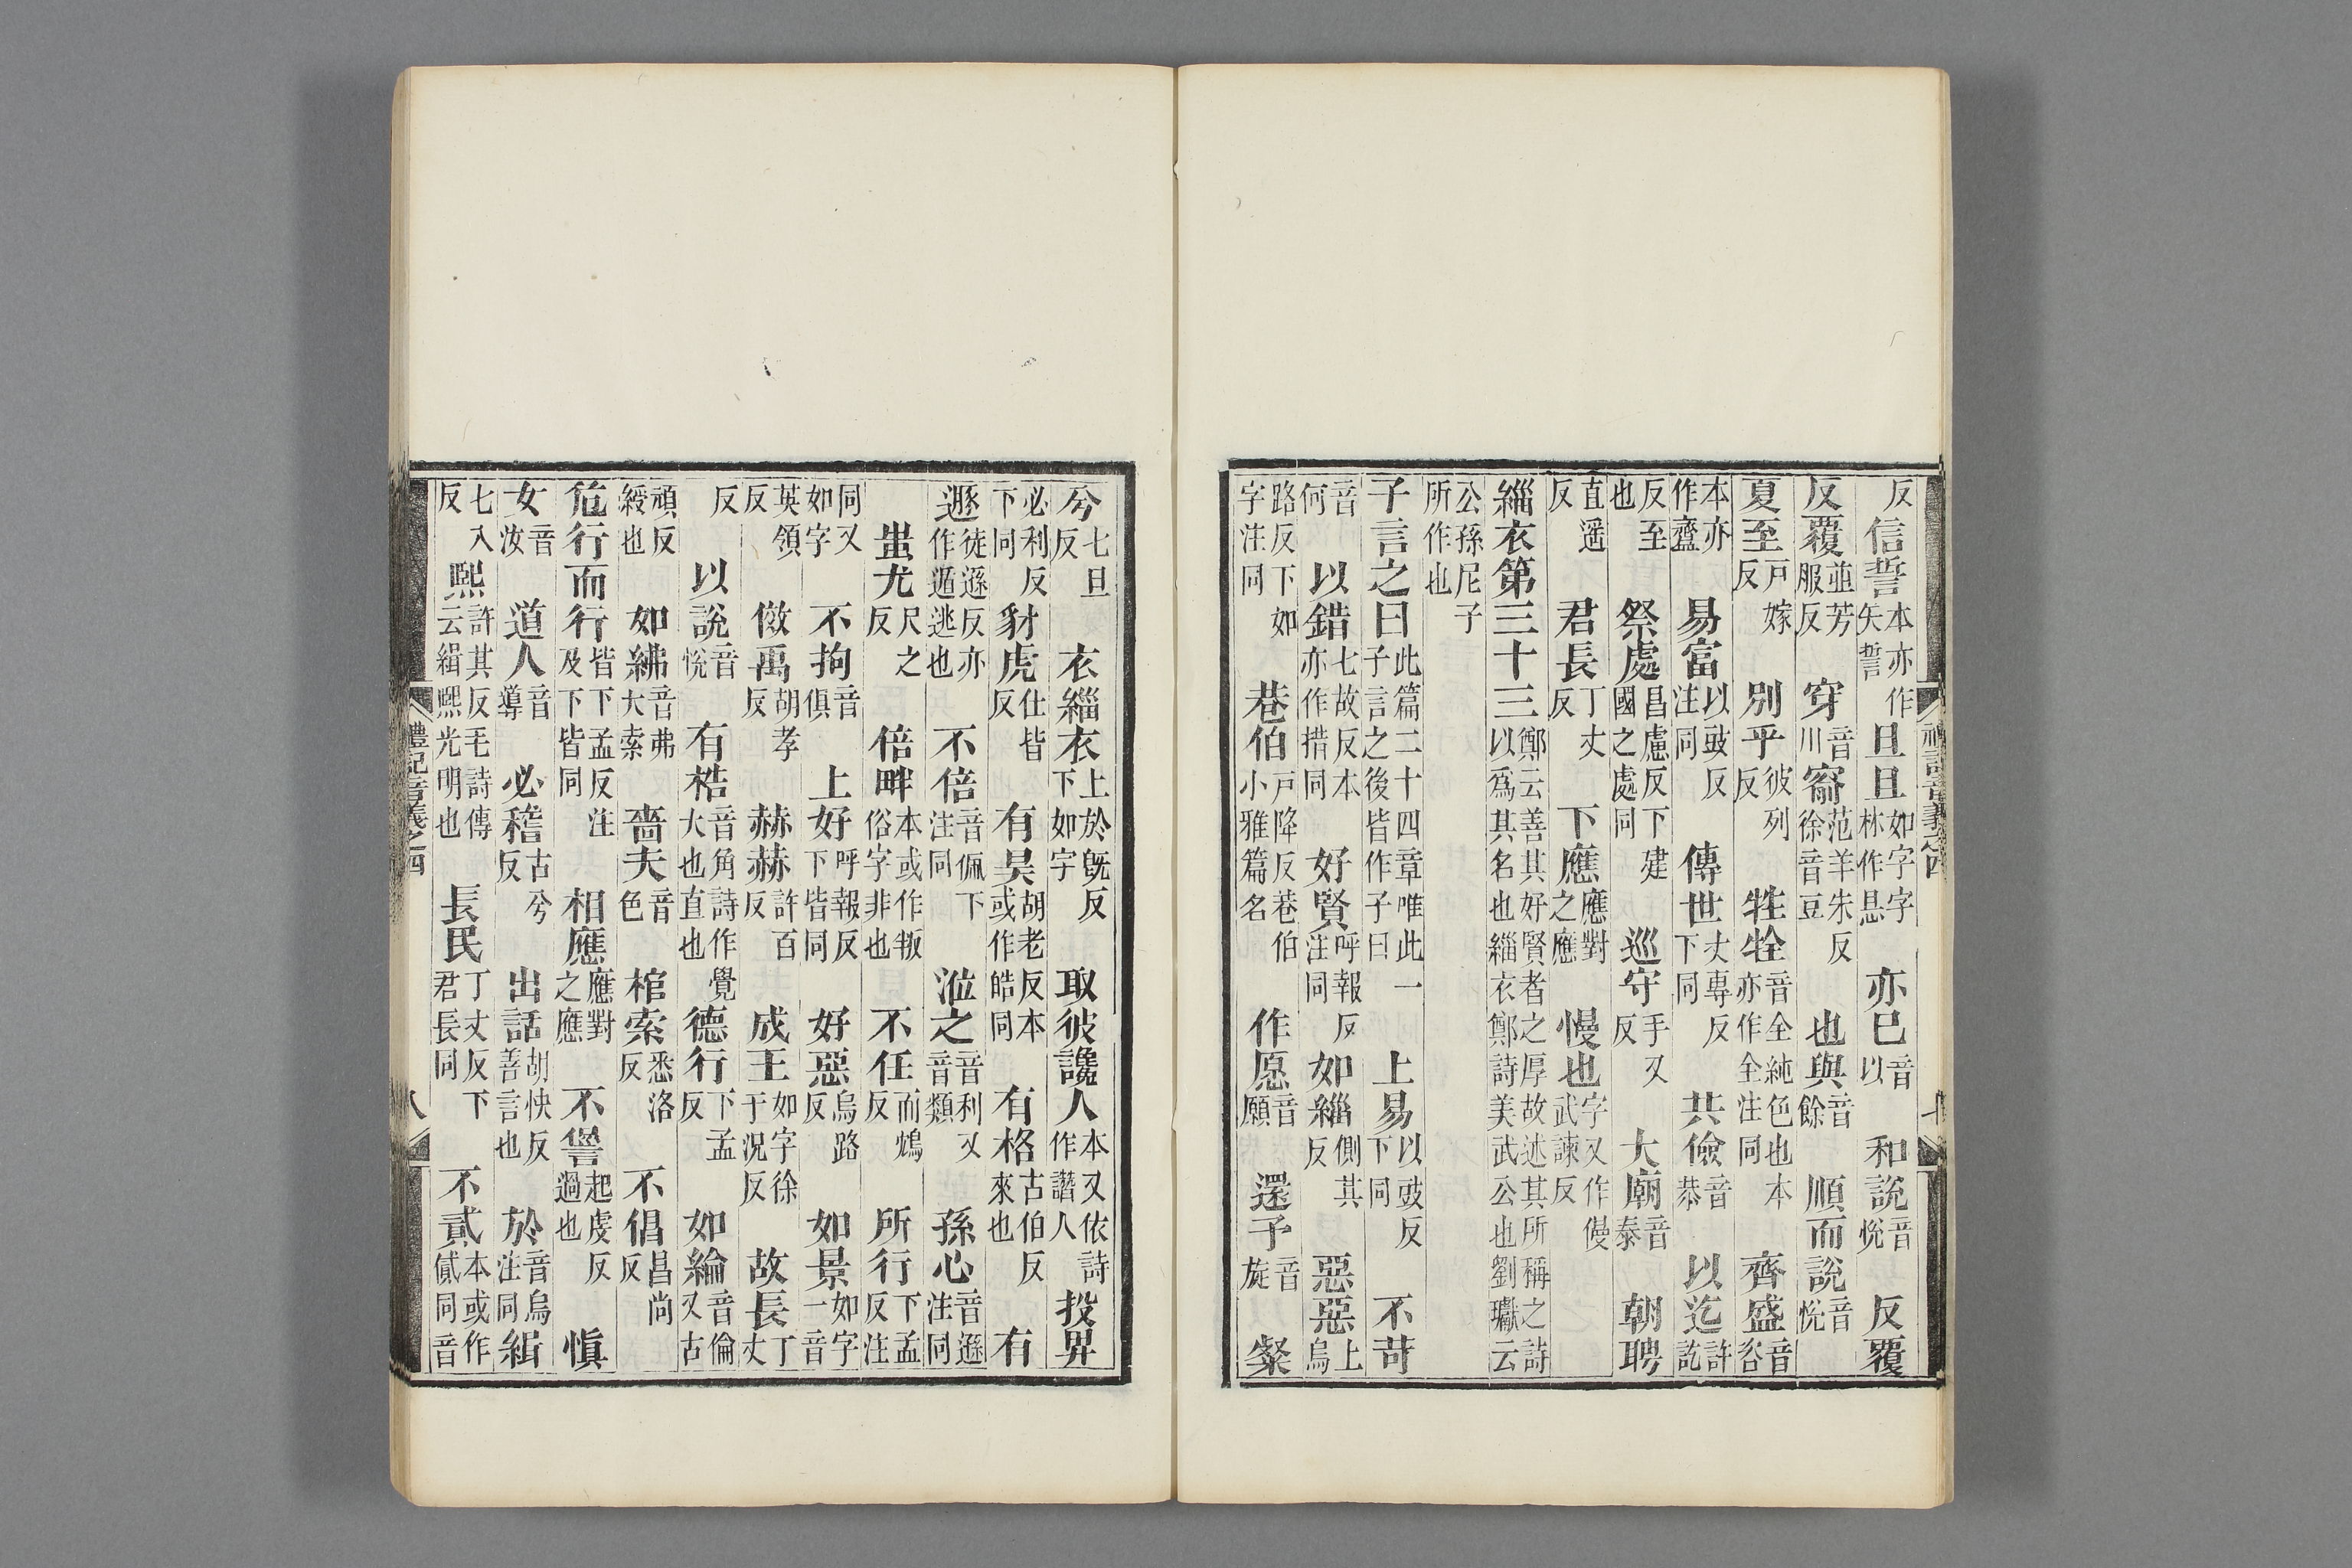 反　信誓本亦作矢誓　旦旦如字字林作悬　亦已音以　和説音悅　反覆
反覆並芳服反　穿音川窬范羊朱反徐音豆　也與音餘　順而說音悅
夏至戸嫁反　別乎彼列反　牲牷音全純色也本亦作全注同　齊盛音咨
本亦作齍　易富以豉反注同　傳世丈專反下同　共儉音恭　以迄許訖
反至也　祭處昌慮反下建國之處同　巡守手又反　大廟音泰　朝聘
直遥反　君長丁丈反　下應應對之應　慢也字又作僈武諫反
緇衣第三十三鄭云善其好賢者之厚故述其所稱之詩以爲其名也緇衣鄭詩美武公也劉瓛云
公孫尼子所作也
子言之曰此篇二十四章唯此一子言之後皆作子曰　上易以豉反下同　不苛
音何　以錯七故反本亦作措同　好賢呼報反注同　如緇側其反　惡惡上烏
路反下如字注同　巷伯戸降反巷伯小雅篇名　作愿音願　還予音旋　粲
兮七旦反　衣緇衣上於旣反下如字　取彼讒人本又依詩作譖人　投畀
必利反下同　豺虎仕皆反　有昊胡老反本或作皓同　有格古伯反來也　有
遯徒遜反亦作遁逃也　不倍音佩下注同　涖之音利又音類　孫心音遜注同
蚩尤尺之反　倍畔本或作叛俗字非也　不任而鴆反　所行下孟反注
同又如字　不拘音俱　上好呼報反下皆同　好惡烏路反　如景如字一音
英領反　傚禹胡孝反　赫赫許百反　成王如字徐于況反　故長丁丈
反　以說音悅　有梏音角詩作覺大也直也　德行下孟反　如綸音倫又古
頑反綬也　如綍音弗大索　嗇夫音色　棺索悉洛反　不倡昌尚反
危行而行皆下孟反注及下皆同　相應應對之應　不諐起虔反過也　慎
女音汝　道人音導　必稽古兮反　出話胡快反善言也　於音烏注同緝
七入反　熙許其反毛詩傳云緝熙光明也　長民丁丈反下君長同　不貳本或作貣同音
禮記音義之四
八